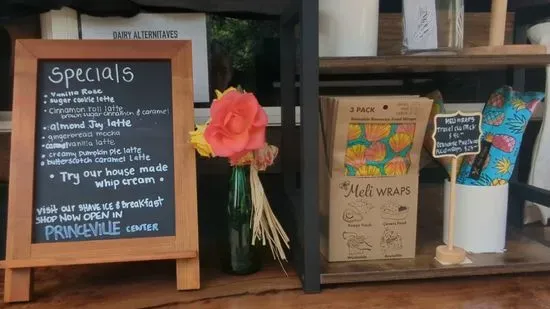 DAIRY ALTERNITAVES
Specials
• Vanilla Rose
• sugar cookie latte
• Cinnamon roll latte
brown sugar cinnamon & caramel
• almond Joy latte
• gingerbread mocha
• caramel vanilla latte
• creamy pumpkin pie latte
• butterscotch caramel latte
• Try our house made
whip cream •
visit our SHAVE ICE & Breakfast
SHOP NOW OPEN IN
PRINCEVILLE CENTER
3 PACK
Reusable Beeswax Food Wraps
Meli WRAPS
Keeps Food
Fresh
MELI WRAPS